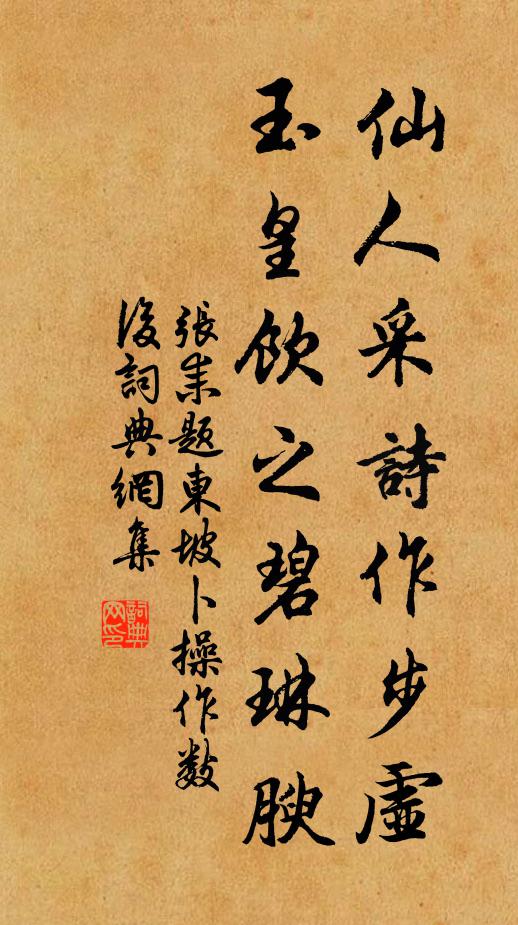 仙人采詩作步虛
玉皇飲之碧琳腴
張耒題東坡卜操作數
後詞典網集
詞典
网印